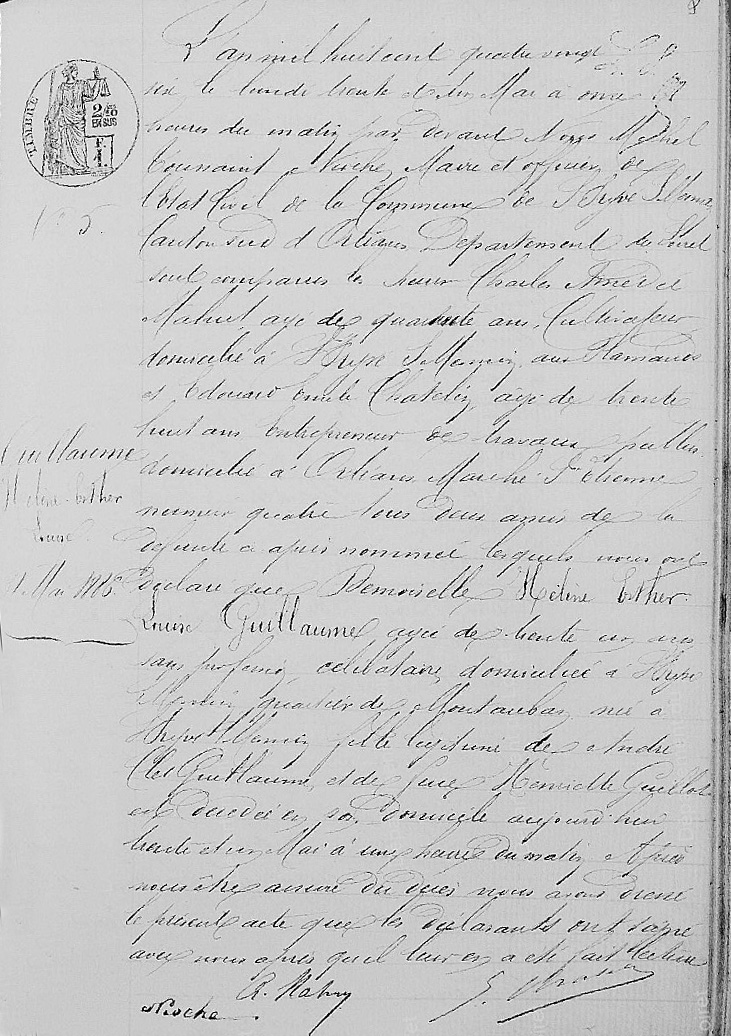 L'an mil huit cent quatre vingt
six le lundi trente et un Mai à onze
heures du matin par devant Nous Michel
Toussaint Nioche, Maire et officier de
l'Etat Civil de la Commune de St Hypte St Mesmin
Canton sud d'Orléans Département du Loiret
sont comparus les sieurs Charles Amedée
age de quarante ans, Cultivateur
domicilié à St Hypte St Mesmin aux
et Edouard Emile Chatelin, âgé de trente
huit ans Entrepreneur de travaux publics
domicilié à Orléans Marché St Etienne
numero quatre tous deux amis de la
défunte ci après nommée lesquels nous ont
déclaré que Demoiselle Hélène Esther
Louise Guillaume agée de trente un ans
sans profession, célibataire, domiciliée à St Hypte
St Mesmin quartier de Montauban, née à
St Hypte St Mesmin fille légitime de André
Guillaume, et de feue Henriette Guillot
est décédée en son domicile aujourd'hui
trente et un Mai à une heure du matin. Après
nous être assuré du décès nous avons dressé
le présent acte que les déclarants ont signé
avec nous après qu'il leur en a été fait lecture
Nioche
TIMBRE
2/10
EN SUS
F.
1.
No 5.
Guillaume
Hélène Esther
Louise
31 Mai 1886